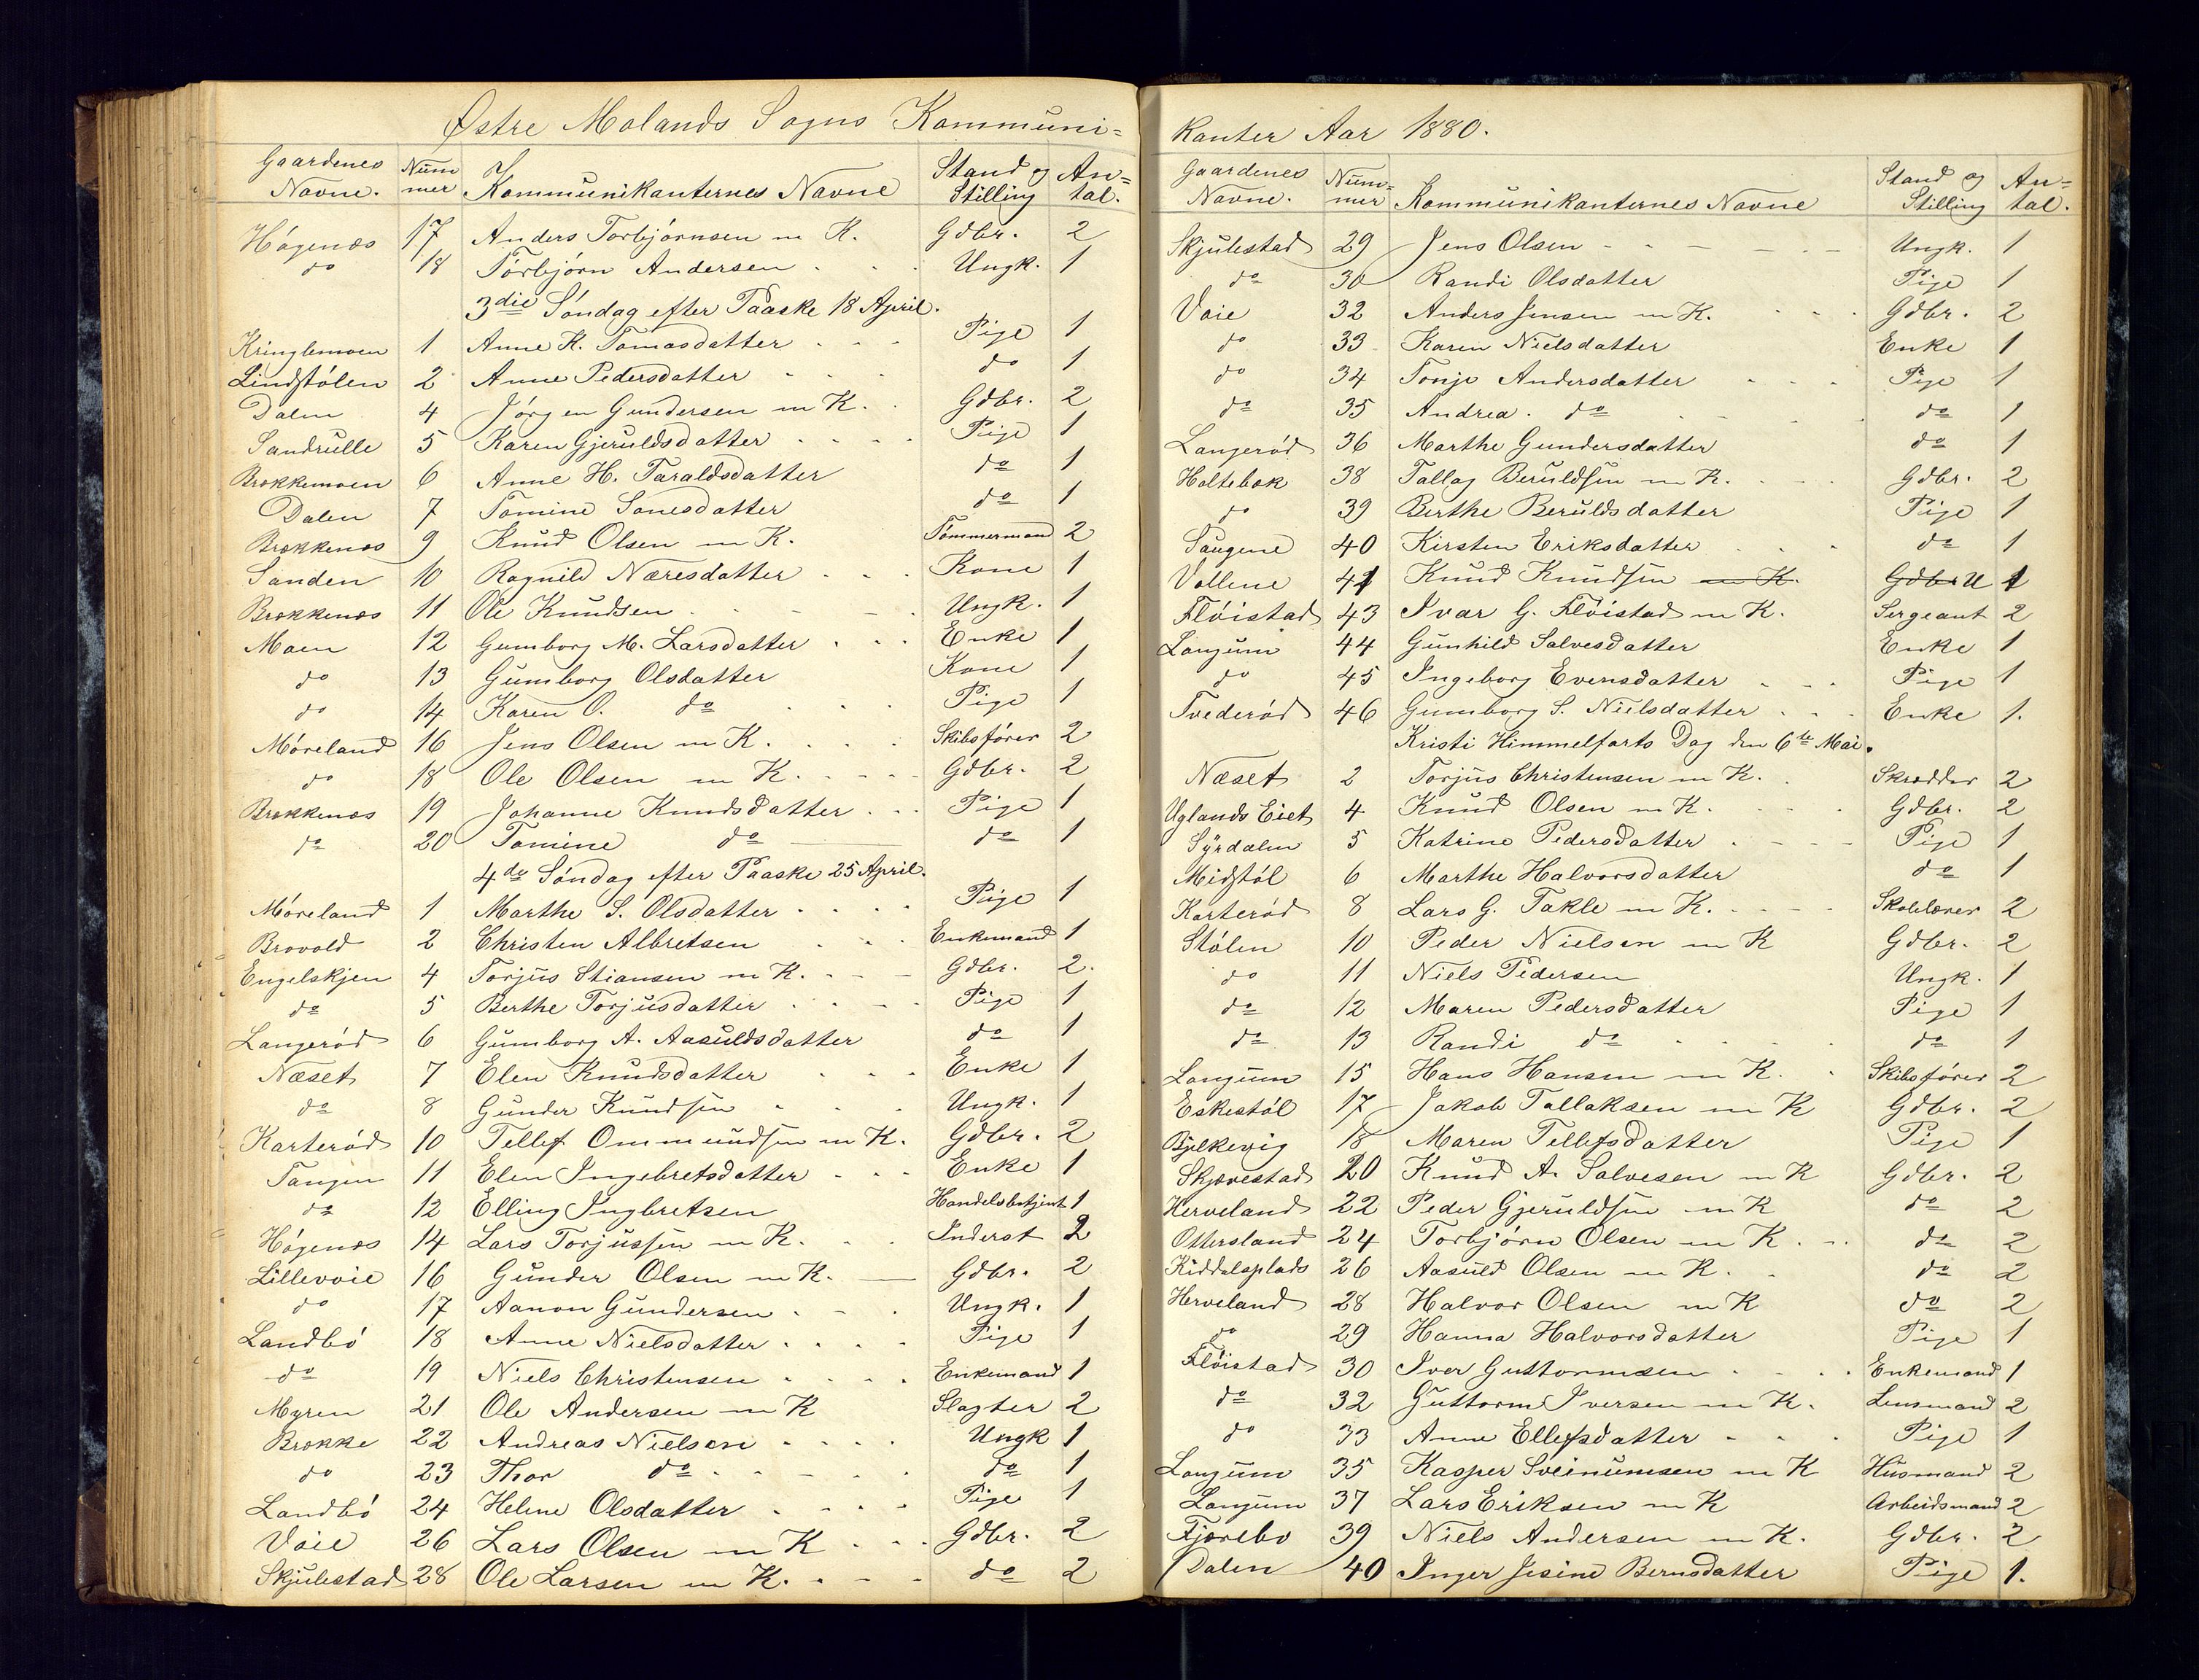 Østre Molands Sogns Kommuni=
Gaardenes Navne. Nummer Kommunikanternes Navne Stand og Stilling An=tal.
Högenæs 17 Anders Torbjörnsen m K. Gdbr. 2
do 18 Törbjörn Andersen Ungk. 1
3die Söndag efter Paaske 18 April.
Kringlemoen 1 Anne K. Tomasdatter Pige 1
Lindstölen 2 Anne Pedersdatter do 1
Dalen 4 Jörgen Gundersen m K. Gdbr. 2
Sandrulle 5 Karen Gjeruldsdatter Pige 1
Brækkemoen 6 Anne H. Taraldsdatter do 1
Dalen 7 Tomine Tonesdatter do 1
Brækkenæs 9 Knud Olsen m K. Tömmermand 2
Sanden 10 Ragnild Næresdatter Kone 1
Brækkenæs 11 Ole Knudsen Ungk. 1
Moen 12 Gumborg M. Larsdatter Enke 1
do 13 Gumborg Olsdatter Kone 1
do 14 Karen O. do Pige 1
Möreland 16 Jens Olsen m K. Skibsförer 2
do 18 Ole Olsen m K. Gdbr. 2
Brækkenæs 19 Johanne Knudsdatter Pige 1
do 20 Tomine do do 1
4de Söndag efter Paaske 25 April.
Möreland 1 Marthe S. Olsdatter Pige 1
Brovold 2 Christen Albretsen Enkemand 1
Engelskjen 4 Torjus Stiansen m K. Gdbr. 2.
do 5 Berthe Torjusdatter Pige 1
Langeröd 6 Gumborg A. Aasuldsdatter do 1
Næset 7 Elen Knudsdatter Enke 1
do 8 Gunder Knudsen Ungk. 1
Karteröd 10 Tellef Ommundsen m K. Gdbr. 2
Tangen 11 Elen Ingebretsdatter Enke 1
do 12 Elling Ingbretsen Handelsbetjent 1
Högenæs 14 Lars Torjussen m K. Inderst 2
Lillevoie 16 Gunder Olsen m K. Gdbr. 2
do 17 Aanon Gundersen Ungk. 1
Landbö 18 Anne Nielsdatter Pige 1
do 19 Niels Christensen Enkemand 1
Myren 21 Ole Andersen m K Slagter 2
Brække 22 Andreas Nielsen Ungk 1
do 23 Thor do do 1
Landbö 24 Helene Olsdatter Pige 1
Voie 26 Lars Olsen m K Gdbr. 2
Skjulestad 28 Ole Larsen m K. do 2
kanter Aar 1880.
Gaardenes Navne. Num=mer Kommunikanternes Navne Stand og Stilling An=tal.
Skjulestad 29 Jens Olsen Ungk. 1
do 30 Randi Olsdatter Pige 1
Voie 32 Anders Jensen m K. Gdbr. 2
do 33 Karen Nielsdatter Enke 1
do 34 Tonje Andersdatter Pige 1
do 35 Andrea. do do 1
Langeröd 36 Marthe Gundersdatter do 1
Holtebæk 38 Tallag Beruldsen m K. Gdbr. 2
do 39 Berthe Beruldsdatter Pige 1
Saugene 40 Kirsten Eriksdatter do 1
Vollene 41 Knud Knudsen m K. Gdbr U 1
Flöistad 43 Ivar G. Flöistad m K. Sergeant 2
Longum 44 Gunhild Salvesdatter Enke 1
do 45 Ingeborg Evensdatter Pige 1
Tvederöd 46 Gumborg S. Nielsdatter Enke 1.
Kristi Himmelfarts Dag den 6te Mai.
Næset 2 Torjus Christensen m K. Skrædder 2
Uglands Eiet 4 Knud Olsen m K. Gdbr. 2
Syrdalen 5 Katrine Pedersdatter Pige 1
Midstöl 6 Marthe Halvorsdatter do 1
Karteröd 8 Lars G. Takle m K. Skolelærer 2
Stölen 10 Peder Nielsen m K Gdbr. 2
do 11 Niels Pedersen Ungk. 1
do 12 Maren Pedersdatter Pige 1
do 13 Randi do do 1
Longum 15 Hans Hansen m K. Skibsförer 2
Eskestöl 17 Jakob Tallaksen m K Gdbr. 2
Bjelkevig 18 Maren Tellefsdatter Pige 1
Skjævestad 20 Knud A. Salvesen m K Gdbr. 2
Herveland 22 Peder Gjeruldsen m K do 2
Ottersland 24 Torbjörn Olsen m K do 2
Kiddelsplads 26 Aasuld Olsen m K. do 2
Herveland 28 Halvor Olsen m K do 2
do 29 Hanna Halvorsdatter Pige 1
Flöistad 30 Iver Guttormsen Enkemand 1
do 32 Guttorm Iversen m K. Lensmand 2
do 33 Anne Ellefsdatter Pige 1
Longum 35 Kasper Sveinumsen m K Husmand 2
Longum 37 Lars Eriksen m K Arbeidsmand 2
Fjærebo 39 Niels Andersen m K. Gdbr. 2
Dalen 40 Inger Jesine Bernsdatter Pige 1.